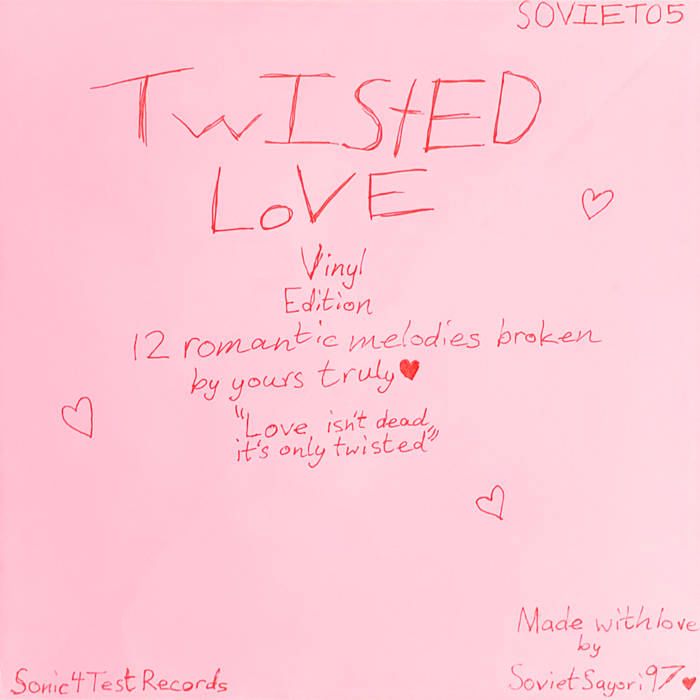 SOVIET05
TWIStED
LoVE
Vinyl
Edition
12 romantic melodies broken
by yours truly♥
"Love isn't dead,
it's only twisted"
Made with love
by
SovietSayori97♥
Sonic4TestRecords